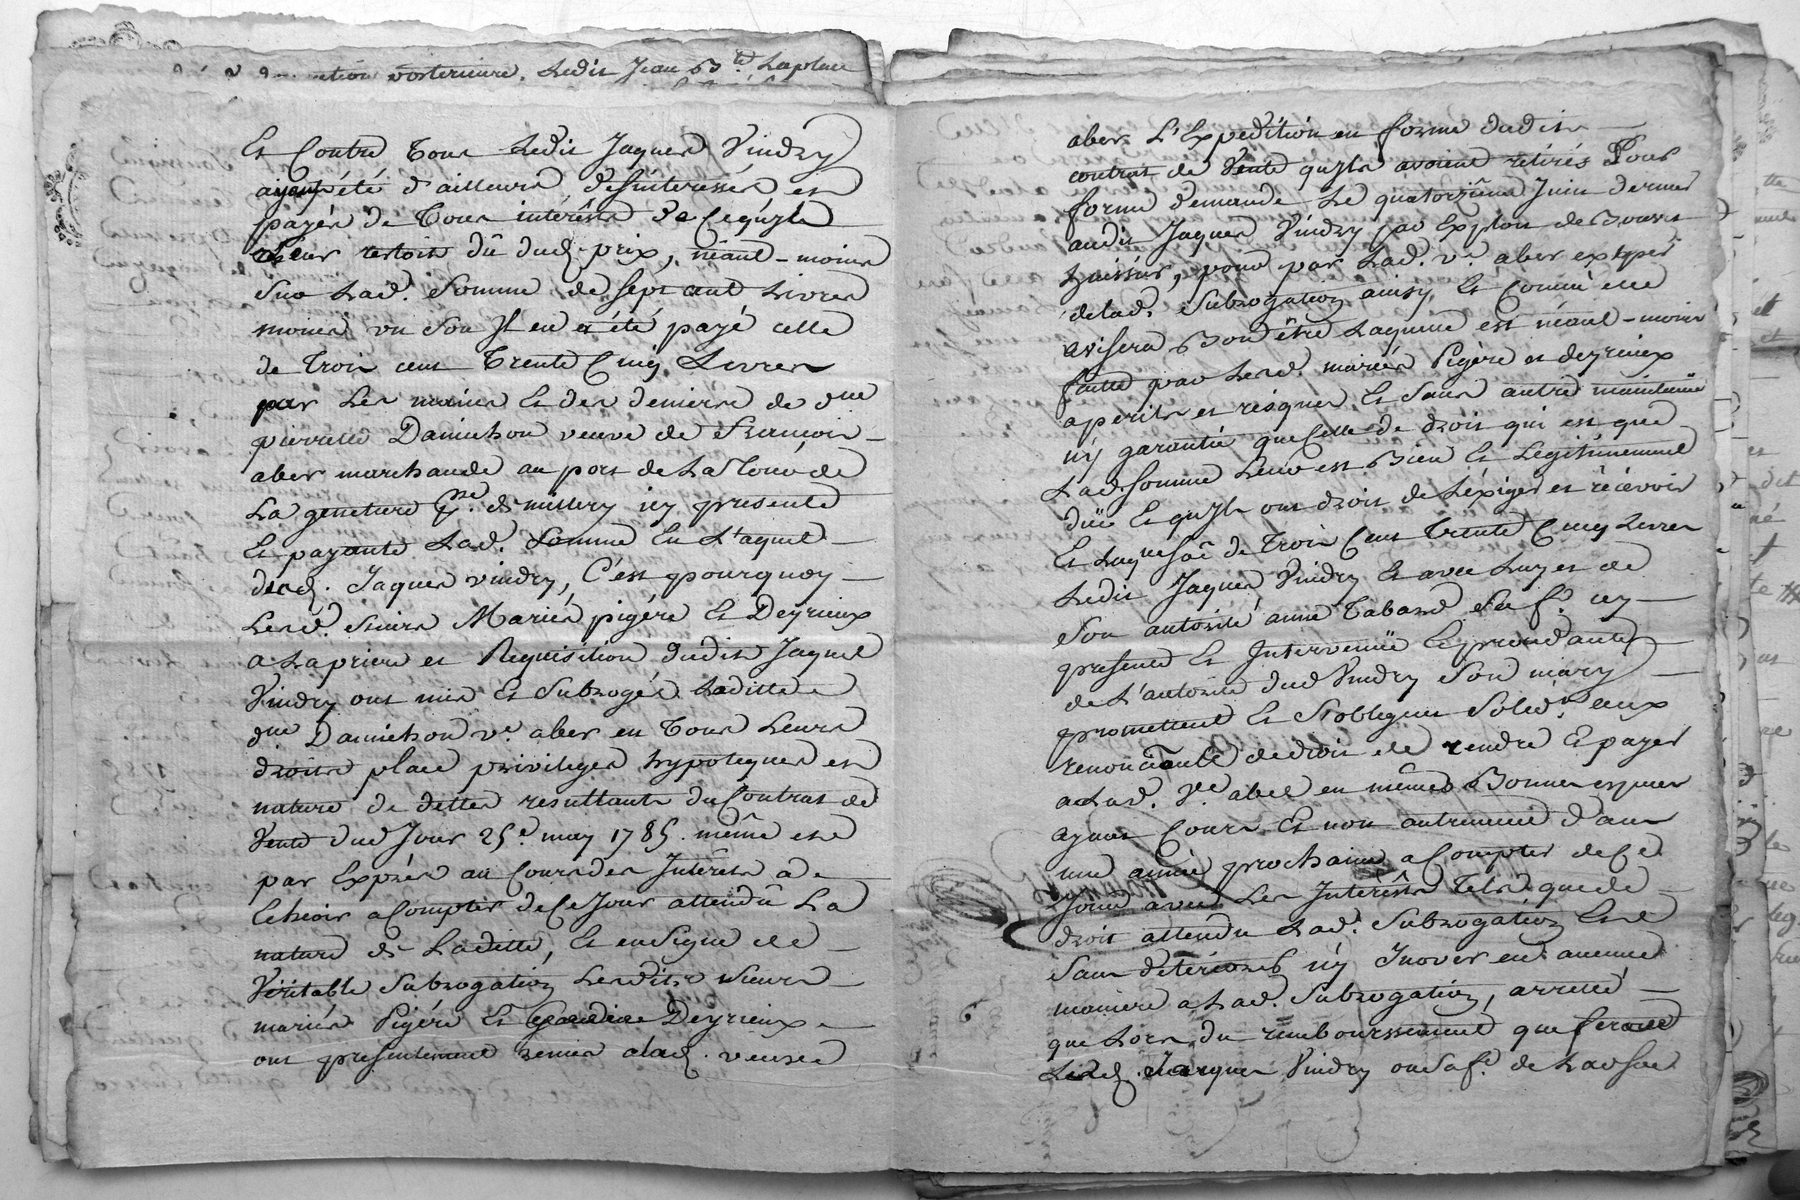 posterieure. Ledit Jean Bte. Laplace
Et Contre Tous Ledit Jaques Vindry
ayant été d'ailleurs desinteressés et
payés de Tous intérêts de Ce qu'yls
Leur restoit dû dud. prix, néant-moins
Sur Lad. Somme de sept cent Livres
moins un Sou Jl en a été payé celle
de Trois cent Trente Cinq Livres
par Les mains Et des deniers de dme
pierrette Damichon veuve de François
aber marchande au port de La Tour de
La gencture psse. de millery icy presente
Et payante Lad. Somme En L'aquit
dud. Jaques vindry, C'est pourquoy
Lesd. Sieurs Mariés pigére Et Deyrieux
a La priere et Requisition dudit Jaques
Vindry ont mis Et Subrogés Laditte
dme Damichon ve. aber en Tous Leurs
droits place privileges hypoteques et
nature de dettes resultants du Contrat de
Vente dud Jour 25e. may 1785. même et
par Exprés au Cours des Intérêts a
Echeoir a Compter de Ce Jour attendû La
nature de Laditte, Et en Signe de
Véritable Subrogation Lesdits Sieurs
mariés Pigére Et Deyrieux
ont presentement remis a lad. veuve
aber L'Expedition en forme dudit
contrat de Vente qu'yls avoient retirés Pour
forme demande Le quatorzième Juin dernier
audit Jaques Vindry par Exploit de
huissier, pour par Lad. ve. aber exsiper
de lad. Subrogation ainsy Et Comme elle
avisera Bon être Laquelle est néant-moins
faitte par Lesd. mariés Pigére et deyrieux
a perils et risques Et Sans autre maintenüe
ny garantie que Celle de droit qui est que
Lad Somme Leur est Bien Et Légitimement
düe Et qu'yls ont droit de L'éxiger et récevoir
Et Laqlle Soê de Trois Cent Trente Cinq Livres
Ledit Jaques Vindry Et avec Luy et de
Son autorité anne Tabard Sa fe. icy
presente Et Intervenüe Espriendante
de L'autorité dud Vindry Son mary
promettent Et S'obligent Solid.nt eux
renonçants de droit de rendre Et payer
a Lad. Ve. abel en mêmes Bonnes espèces
ayant Cours Et non autrement d'au
une année prochaine a Compter de Ce
Jour avec Les Intérêts Tels que de
droit attendu Lad. Subrogation Et
Sans détériorer ny Jnover en aucune
maniere a Lad. Subrogation, arretté
que Lors du remboursement que feront
Led. Jacques Vindry ou Sa fe. de Lad Soe